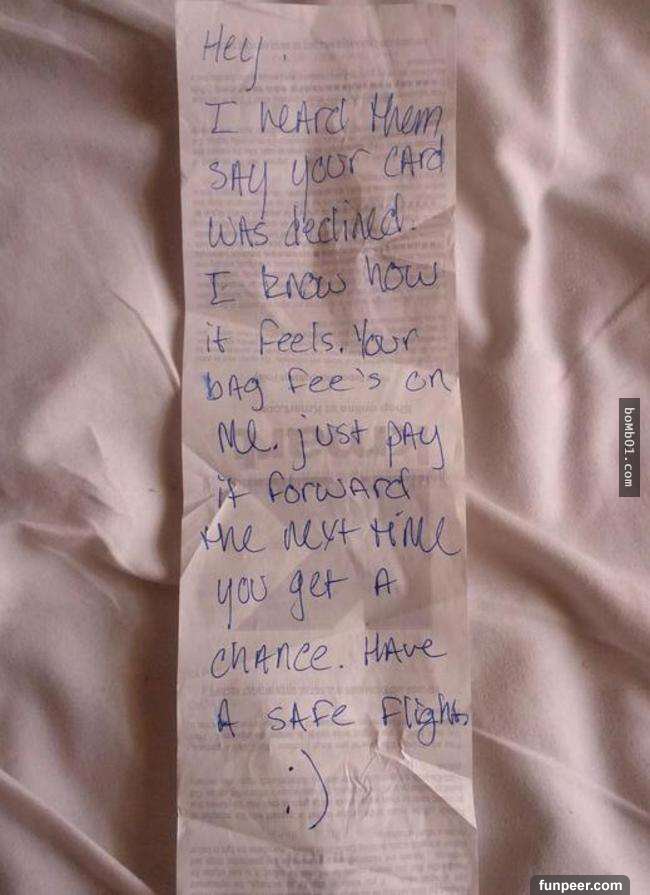 Hey.
I heard them
say your card
was declined.
I know how
it feels. Your
bag fee's on
me. just pay
it forward
the next time
you get a
chance. Have
a safe flight
:)
boMb01.com
funpeer.com